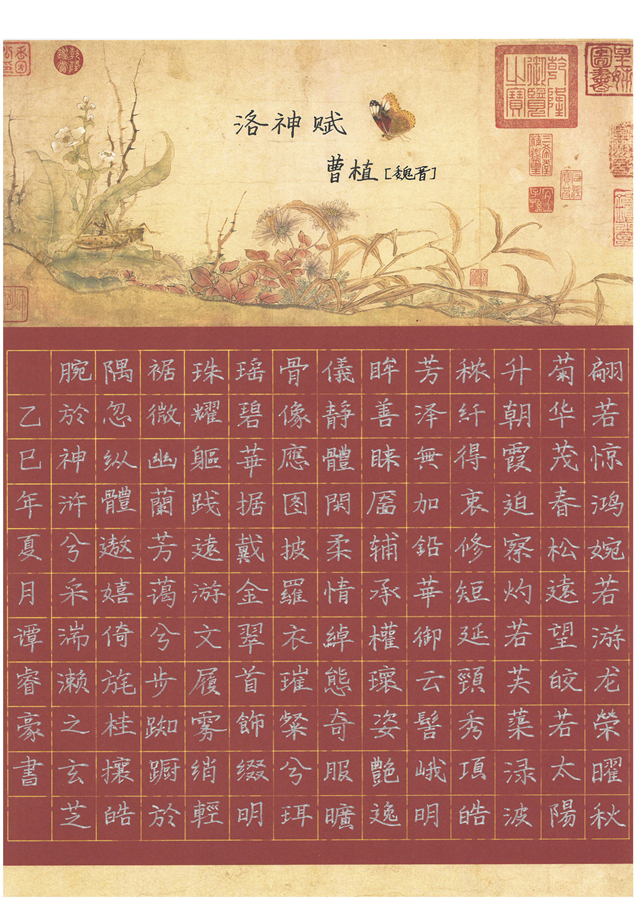 洛神赋
曹植[魏晋]
乾隆御覽之寶
乾隆鑒賞
三希堂精鑒璽
宜子孫
翩若惊鸿婉若游龙榮曜秋
菊华茂春松遠望皎若太陽
升朝霞迫察灼若芙蕖渌波
秾纤得衷修短延頸秀項皓
芳泽無加鉛華御云髻峨明
眸善睐靨辅承權瓌姿艷逸
儀静體閑柔情綽態奇服曠
骨像應图披羅衣璀粲兮珥
瑶碧華据戴金翠首飾缀明
珠耀軀践遠游文履雾绡輕
裾微幽蘭芳蔼兮步踟蹰於
隅忽纵體遨嬉倚旄桂攘皓
腕於神浒兮采湍濑之玄芝
乙巳年夏月谭睿豪書